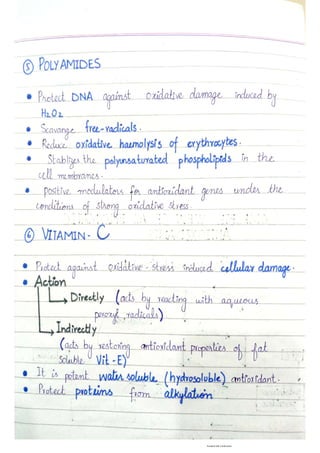 ⑤ POLYAMIDES
• Protect DNA against oxidative damage induced by
H₂O₂
• Scavange free-radicals.
• Reduce oxidative haemolysis of erythrocytes.
• Stablizes the polyunsaturated phospholipids in the
cell membranes.
• Positive modulators for antioxidant genes under the
conditions of strong oxidative stress.
⑥ VITAMIN - C
• Protect against oxidative-stress induced cellular damage.
• Action
Directly (acts by reacting with aqueous
peroxyl radicals)
Indirectly
(acts by restoring antioxidant properties of fat
soluble Vit-E)
• It is potent water soluble (hydrosoluble) antioxidant.
• Protect proteins from alkylation